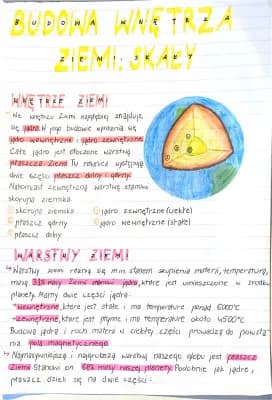 BUDOWA WNĘTRZA
ZIEMI. SKAŁY
WNĘTRZE ZIEMI
We wnętrzu Ziemi najgłębiej znajduje
się jądro. W jego budowie wyróżnia się
jądro wewnętrzne i jądro zewnętrzne.
Całe jądro jest otoczone warstwą
płaszcza Ziemi. Tu również występują
dwie części płaszcz dolny i górny.
Natomiast zewnętrzną warstwę stanowi
skorupa ziemska.
skorupa ziemska jądro zewnętrzne (ciekłe)
płaszcz górny jądro wewnętrzne (stałe)
płaszcz dolny
WARSTWY ZIEMI
↳ Warstwy ziemi różnią się m.in. stanem skupienia materii, temperaturą,
masą. 33% masy Ziemi stanowi jądro, które jest umieszczone w środku
planety. Mamy dwie części jądra:
- wewnętrzne, które jest stałe i ma temperaturę ponad 6000°C
- zewnętrzne, które jest płynne i ma temperaturę około 4500°C
Budowa jądra i ruch materii w ciekłej części prowadzą do powsta
nia pola magnetycznego
↳ Najmasywniejszą i najgrubszą warstwą naszego globu jest płaszcz
Ziemi. Stanowi on 68% masy naszej planety. Podobnie jak jądro,
płaszcz dzieli się na dwie części: